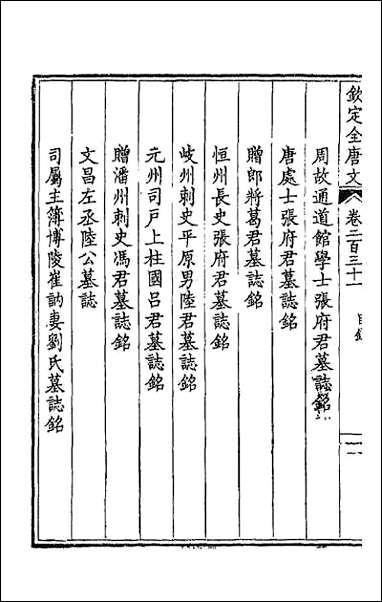 欽定全唐文 卷二百三十一 目錄 一
周故通道館學士張府君墓誌銘
唐處士張府君墓誌銘
贈郎將葛君墓誌銘
恒州長史張府君墓誌銘
岐州刺史平原男陸君墓誌銘
元州司戶上柱國呂君墓誌銘
贈潘州刺史馮君墓誌銘
文昌左丞陸公墓誌
司屬主簿博陵崔訥妻劉氏墓誌銘